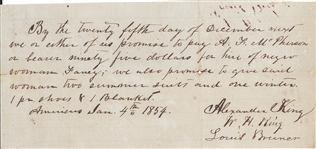 By the twenty fifth day of December next
we or either of us promise to pay A. F. McPherson
or bearer ninety five dollars for hire of negro
woman Fancy; we also promise to give said
woman two summer suits and one winter.
1 pr shoes & 1 Blanket.
Americus Jan. 4th 1854.
Alexander King
W. H. King
Louis Bruner